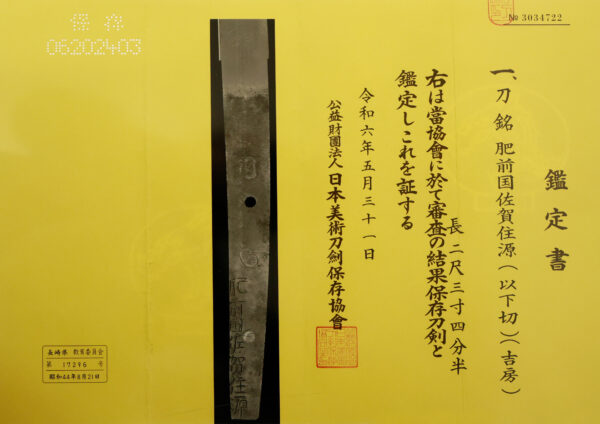 № 3034722
鑑定書
一、刀 銘 肥前国佐賀住源(以下切)(吉房)
長 二尺三寸四分半
右は當協會に於て審査の結果保存刀剣と
鑑定しこれを証する
令和六年五月三十一日
公益財團法人 日本美術刀劍保存協會
保存
06202403
肥前国佐賀住源
長崎県 教育委員会
第 17296 号
昭和44年8月21日